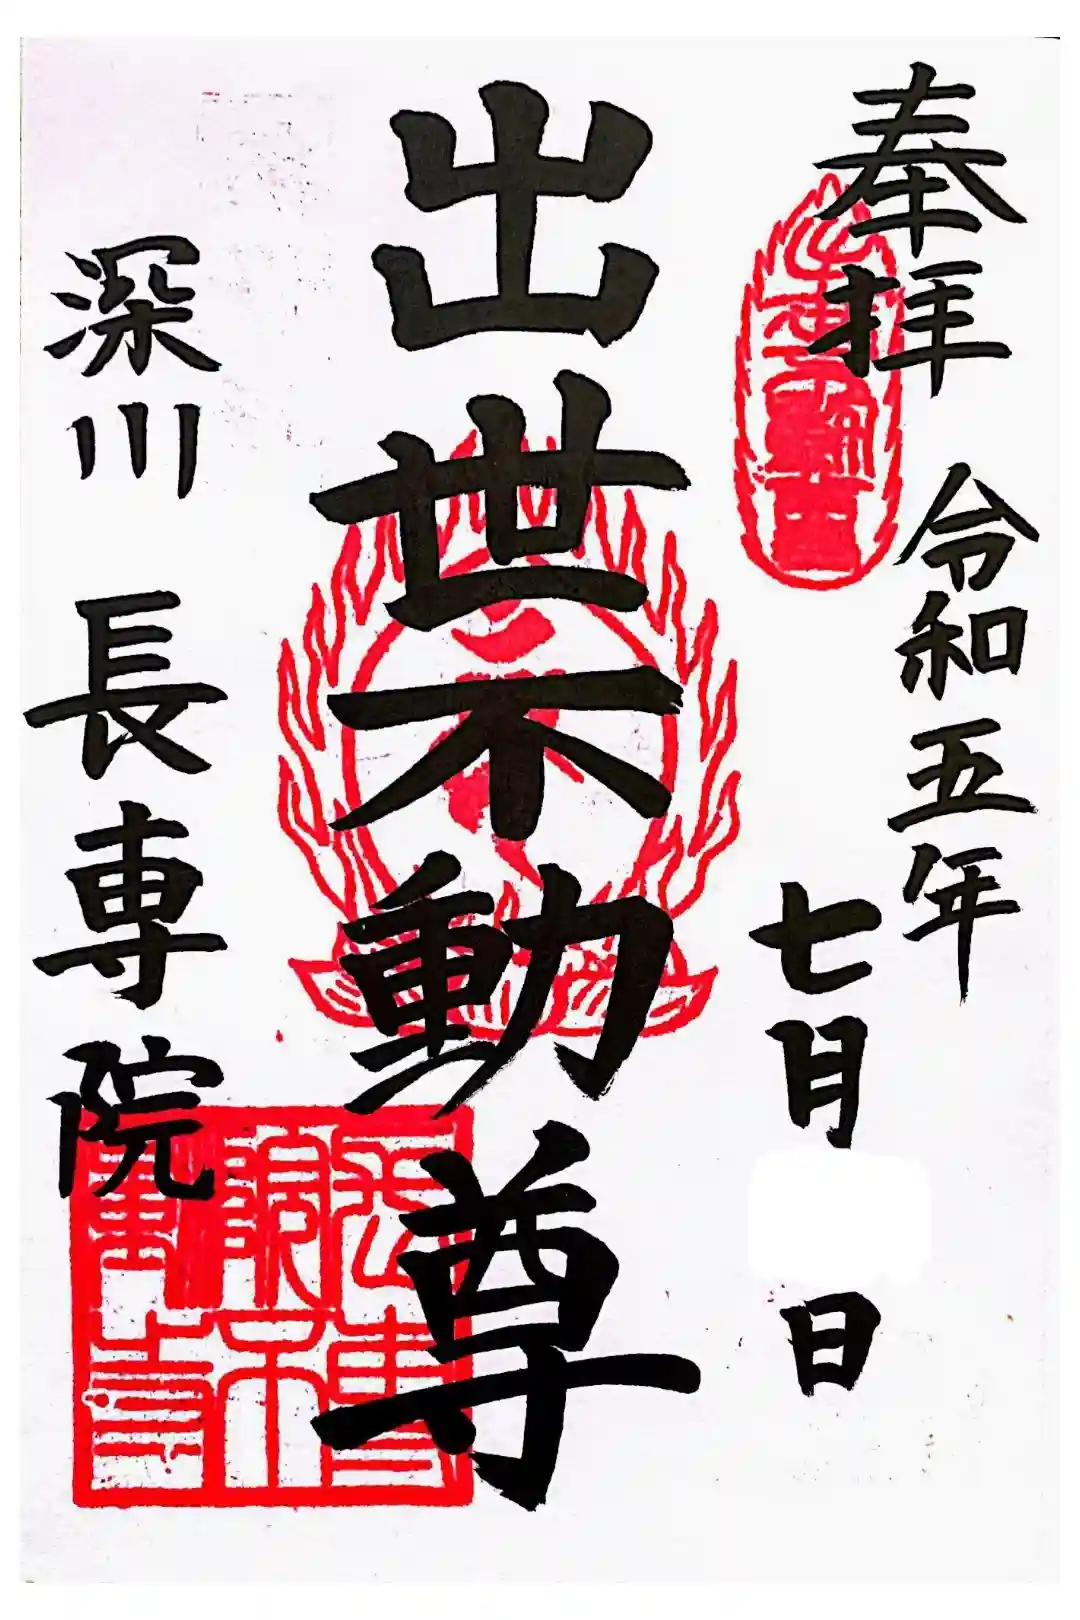 奉拝 令和五年
七月 日
出世不動尊
深川 長専院